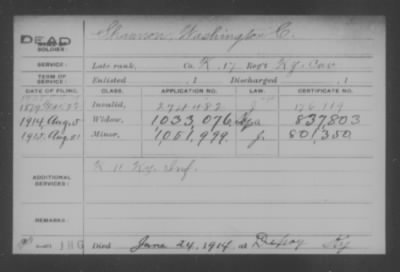 DEAD
SOLDIER: Shannon, Washington C.
SERVICE: Late rank, Co. K, 17 Reg't Ky. Cav
TERM OF SERVICE: Enlisted , 1 Discharged , 1
DATE OF FILING. CLASS. APPLICATION NO. LAW. CERTIFICATE NO.
1879 Invalid, 274482 176119
1914, Aug. 5 Widow, 1,033,076 837,803
1915, Aug. 21 Minor, 1,051,999 J. 801,350
ADDITIONAL SERVICES: K 11 Ky. Inf.
REMARKS:
Died June 24, 1914, at Depoy Ky